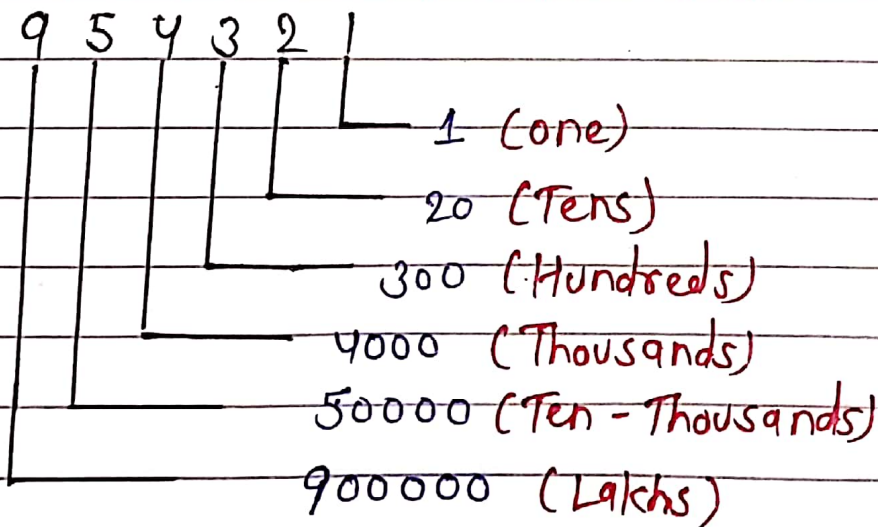 9 5 4 3 2 1
1 (one)
20 (Tens)
300 (Hundreds)
4000 (Thousands)
50000 (Ten - Thousands)
900000 (Lakhs)